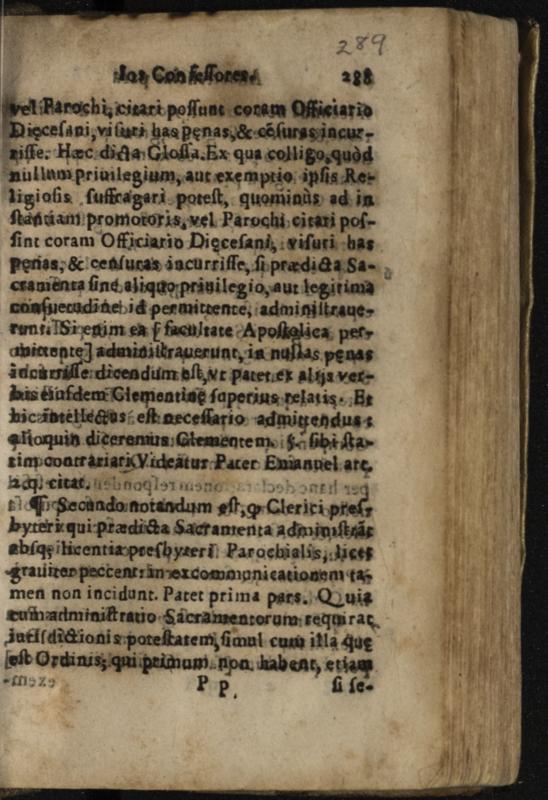 289
Ios Confessores. 288
vel Parochi, citari possunt coram Officiario
Dięcesani, visuri has pęnas, & cẽsuras incur-
risse. Hæc dicta Glossa. Ex qua colligo, quòd
nullum priuilegium, aut exemptio ipsis Re-
ligiosis suffragari potest, quominùs ad in
stantiam promotoris, vel Parochi citari pos-
sint coram Officiario Dięcesani, visuri has
pęnas, & censuras incurrisse, si prædicta Sa-
cramenta sine aliquo priuilegio, aut legitima
consuetudine id permittente, administraue-
runt. Si enim ea [facultate Apostolica per-
mittente] administrauerunt, in nullas pęnas
incurrisse dicendum est, vt patet ex alijs ver-
bis eiusdem Clementinę superius relatis. Et
hic intellectus est necessario admittendus:
alioquin diceremus Clementem. 5. sibi sta-
tim contrariari. Videatur Pater Emanuel art.
q. citat.
¶ Secundo notandum est, q Clerici pres-
byteri qui prædicta Sacramenta administrãt
absq; licentia presbyteri Parochialis, licet
grauiter peccent: in excommunicationem ta-
men non incidunt. Patet prima pars. Quia
cum administratio Sacramentorum requirat
iurisdictionis potestatem, simul cum illa quę
est Ordinis; qui primum non habent, etiam
P p. si se-